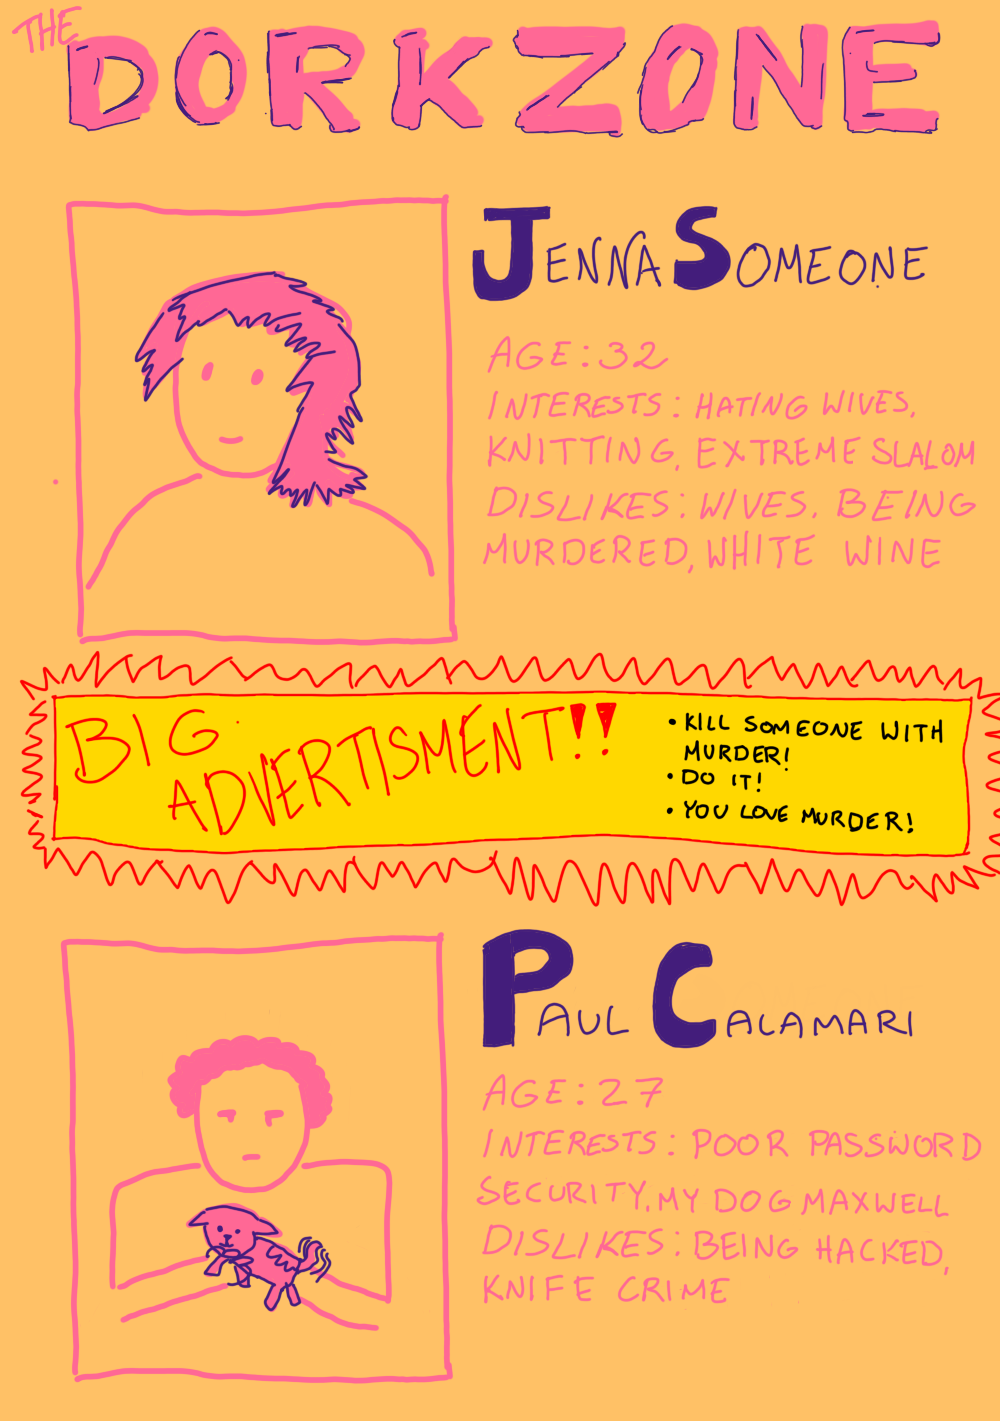 THE
DORKZONE
JENNA SOMEONE
AGE: 32
INTERESTS: HATING WIVES,
KNITTING, EXTREME SLALOM
DISLIKES: WIVES. BEING
MURDERED, WHITE WINE
BIG
ADVERTISMENT!!
• KILL SOMEONE WITH
MURDER!
• DO IT!
• YOU LOVE MURDER!
PAUL CALAMARI
AGE: 27
INTERESTS: POOR PASSWORD
SECURITY, MY DOG MAXWELL
DISLIKES: BEING HACKED,
KNIFE CRIME